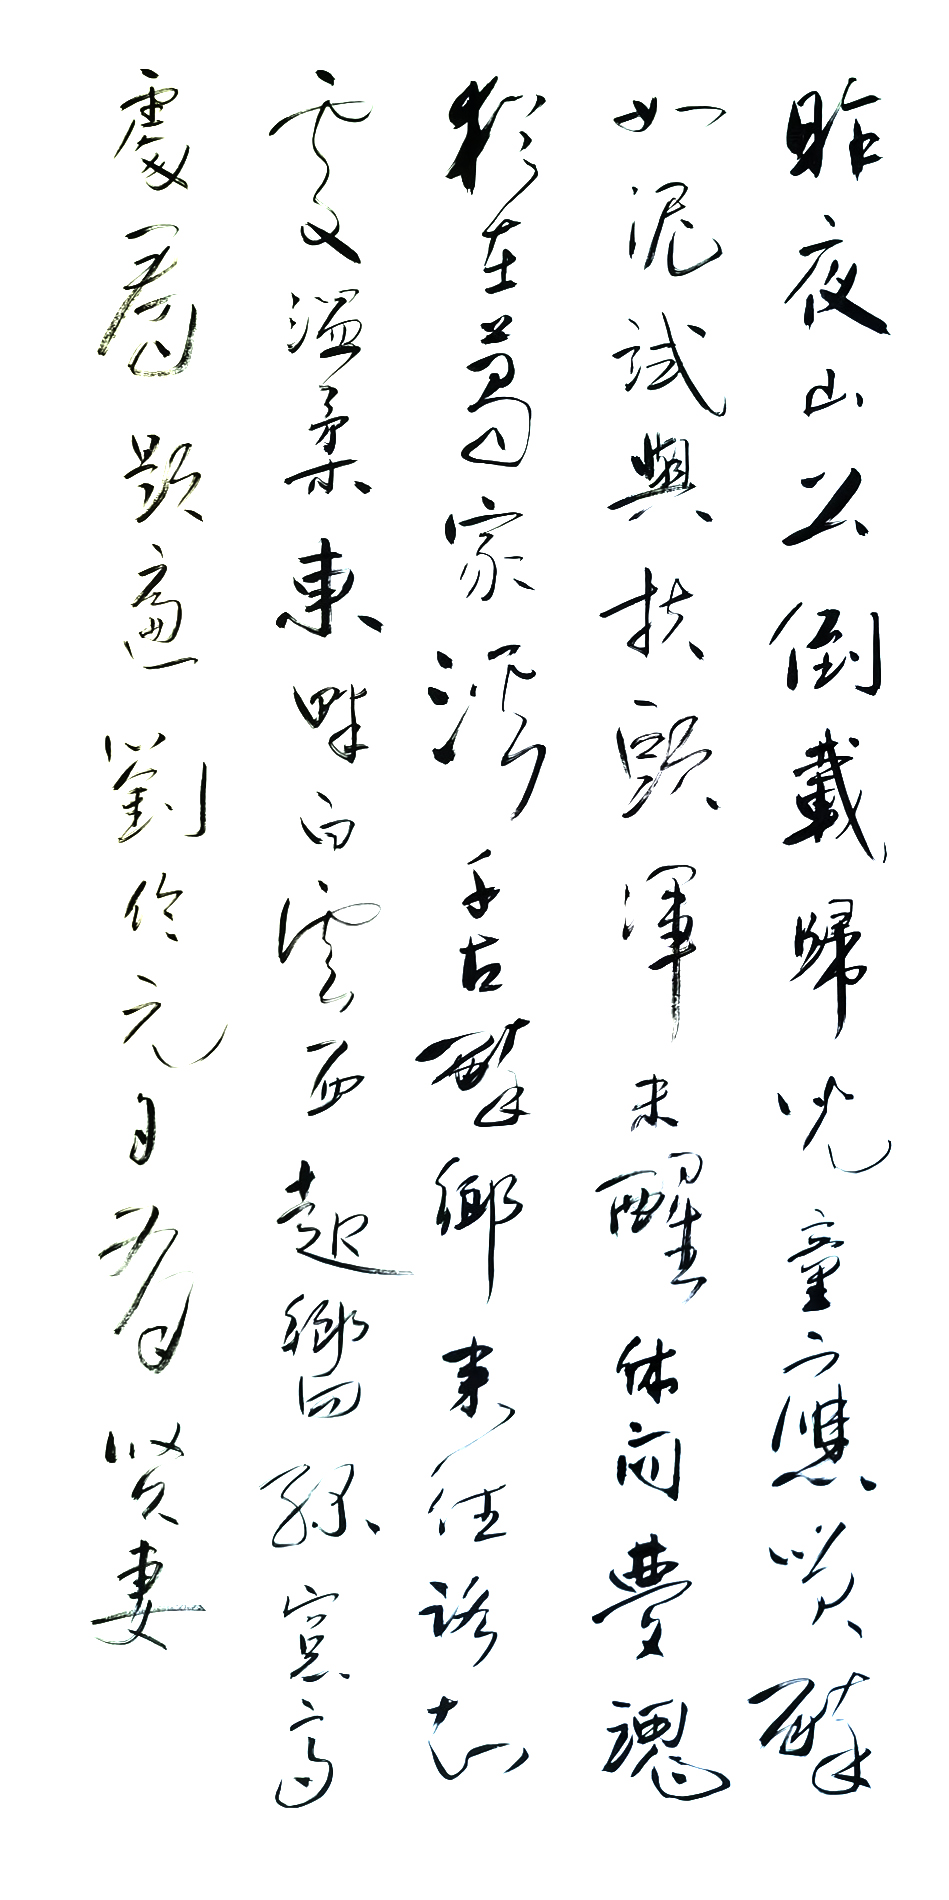 昨夜山公倒載歸兒童應笑醉
如泥試與扶頭渾未醒休問夢魂
猶在葛家溪千古醉鄉來往路知
處溫柔東畔白雲西起嚮綠窗高
處看題遍劉伶元自有賢妻